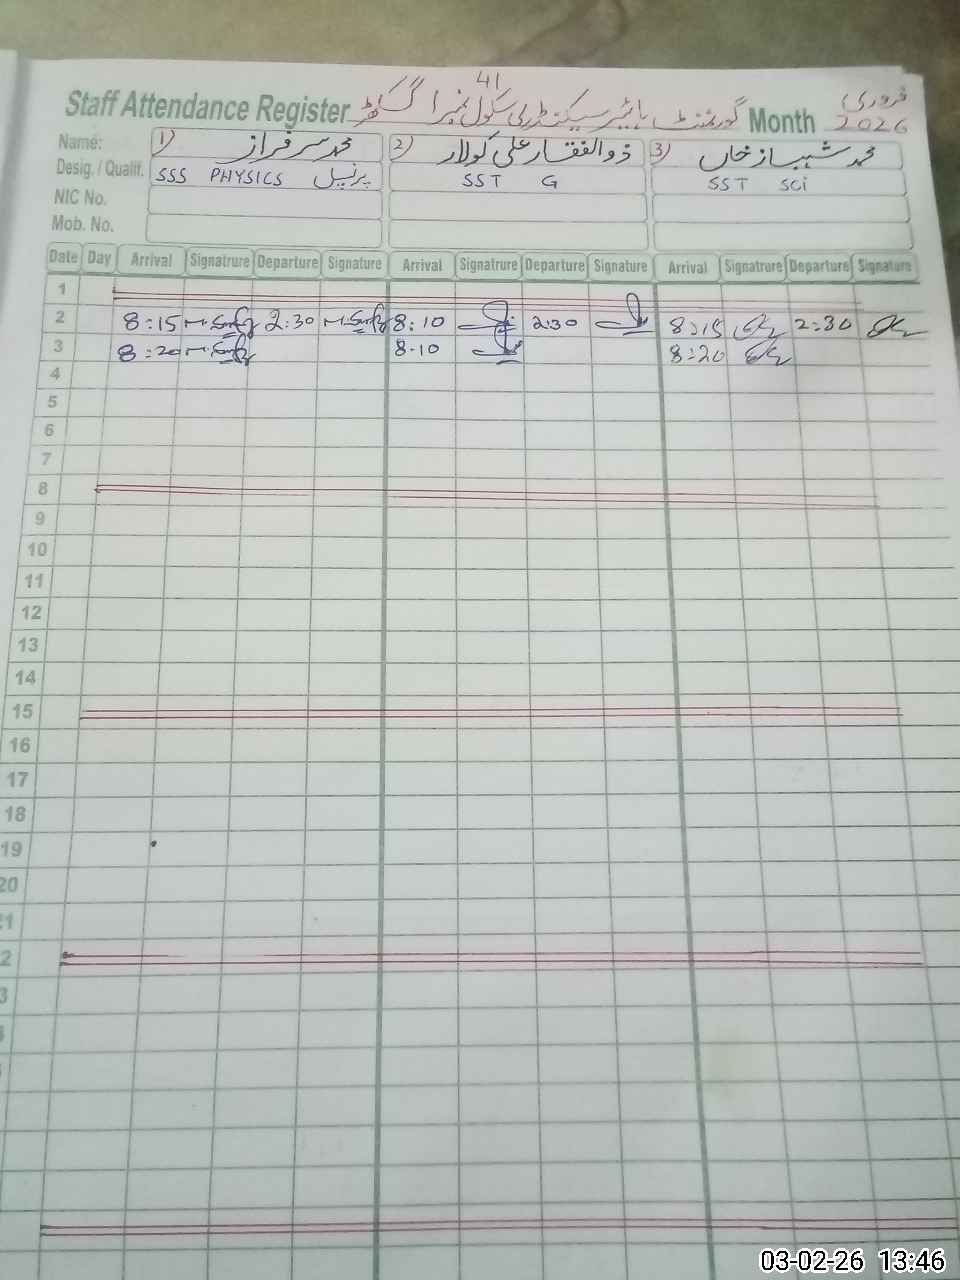 41
Staff Attendance Register گورنمنٹ ہائیر سیکنڈری سکول نمبر 1 Month فروری 2026
Name: 1) محمد سرفراز 2) ذوالفقار علی کولار 3) محمد شہباز خاں
Desig. / Qualif. SSS PHYSICS پرنسپل SST G SST Sci
NIC No.
Mob. No.
Date Day Arrival Signatrure Departure Signature Arrival Signatrure Departure Signature Arrival Signatrure Departure Signature
1
2 8:15 2:30 8:10 2:30 8:15 2:30
3 8:20 8.10 8:20
4
5
6
7
8
9
10
11
12
13
14
15
16
17
18
19
20
03-02-26 13:46